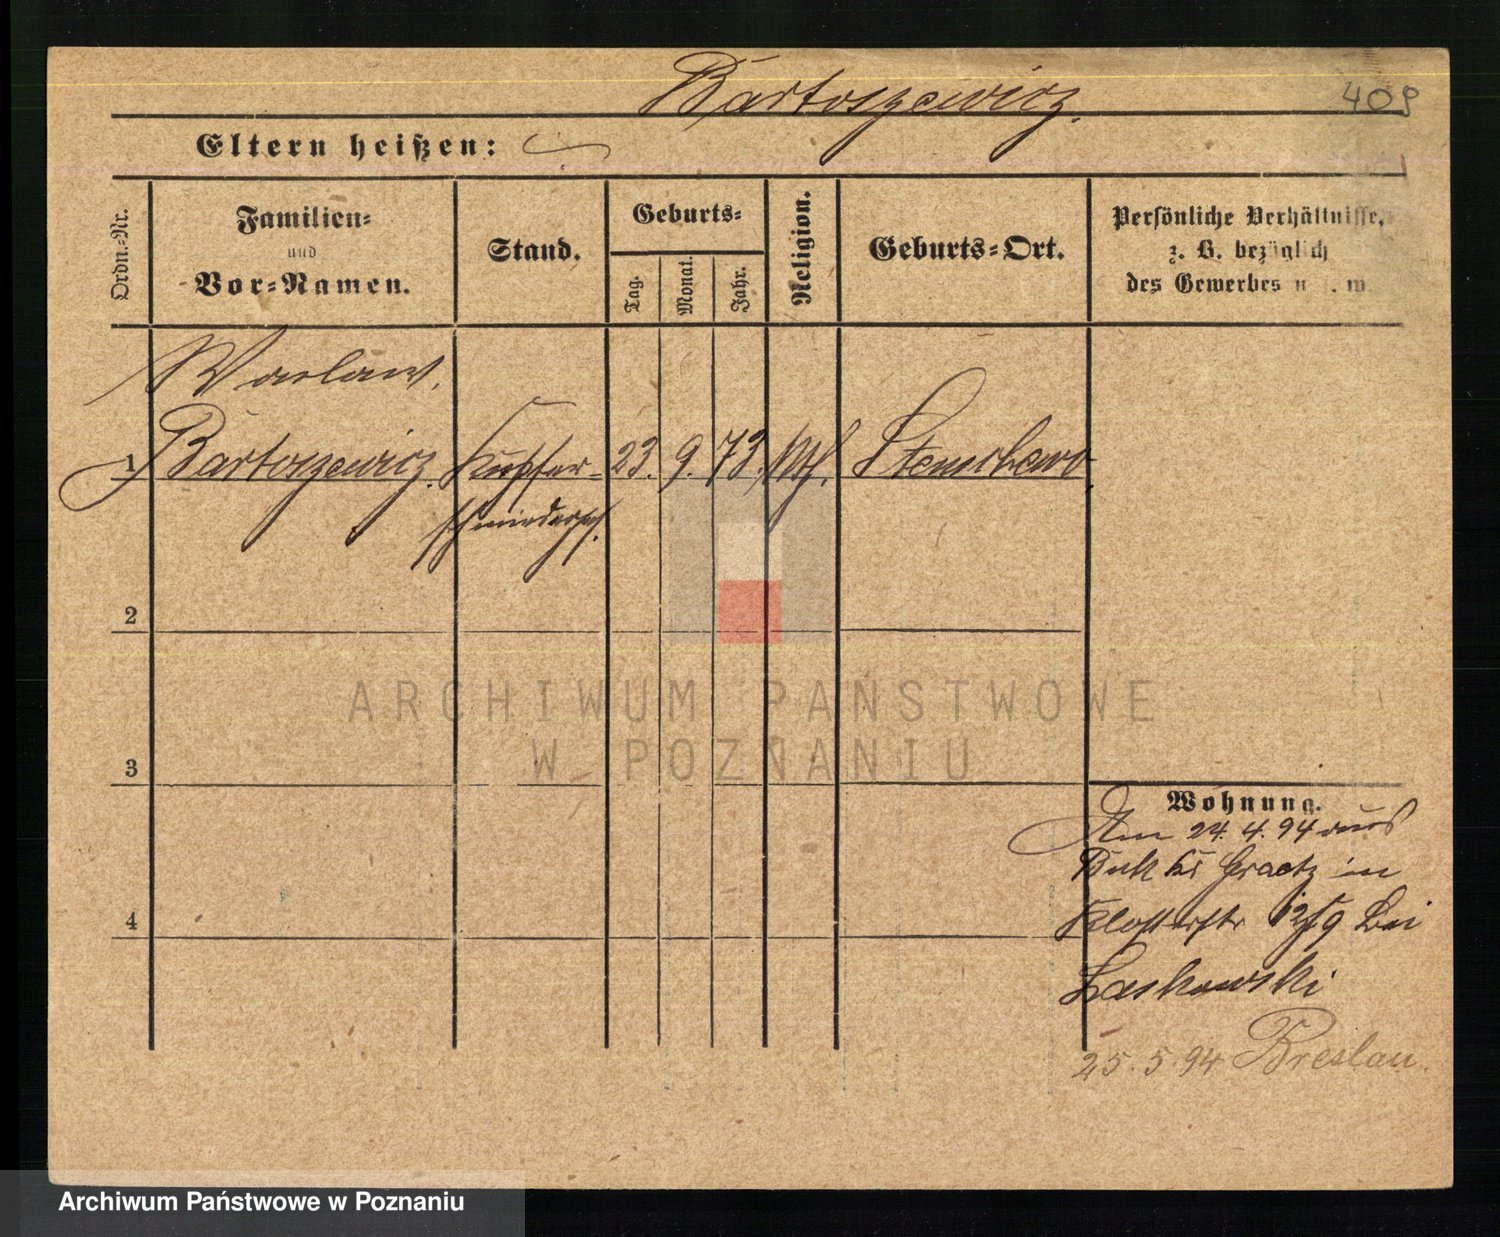 Bartoszewicz.
409
Eltern heißen:
Ordn.-Nr.
Familien-
und
Vor-Namen.
Stand.
Geburts-
Tag.
Monat.
Jahr.
Religion.
Geburts-Ort.
Persönliche Verhältnisse,
z. B. bezüglich
des Gewerbes u. s. w.
Waclaw.
1 Bartoszewicz. Kupfer- 23. 9. 73. kath.
2
3
4
Wohnung.
Am 24. 4. 94 aus
Buk Kr Graetz in
Klosterstr 12/9 bei
Laskowski
25. 5. 94 Breslau.
ARCHIWUM PAŃSTWOWE
W POZNANIU
Archiwum Państwowe w Poznaniu